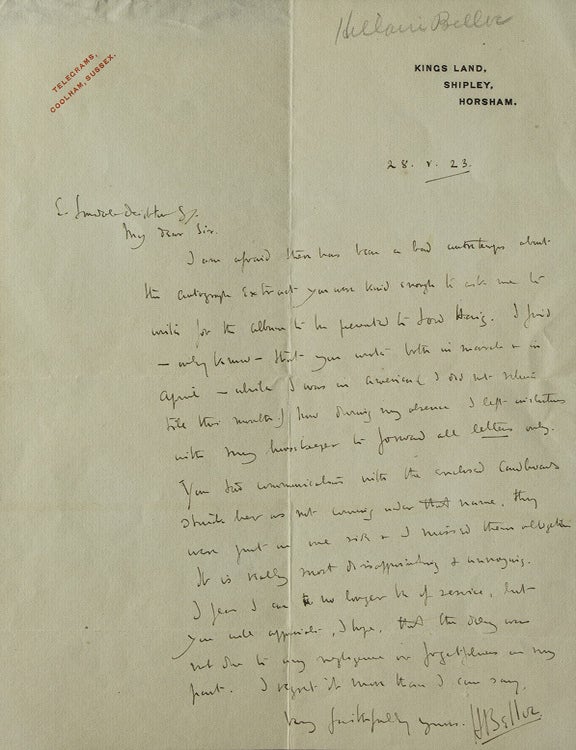 Hillaire Belloc
TELEGRAMS,
COOLHAM, SUSSEX.
KINGS LAND,
SHIPLEY,
HORSHAM.
28. v. 23.
My dear Sir.
I am afraid there has been a bad about
the autograph extract you were kind enough to ask me to
write for the album to be presented to Lord Haig. I find
— only know — that you wrote both in March & in
April — while I was in America (I did not return
till this month) how during my absence I left instructions
with my housekeeper to forward all letters only.
You two communications with the enclosed cardboards
struck her as not coming under that name, they
were put on one side & I missed them altogether
It is really most disappointing & annoying.
I fear I can no longer be of service, but
you will appreciate, I hope, that the delay was
not due to any negligence or forgetfulness on my
part. I regret it more than I can say.
Very faithfully yours. HBelloc